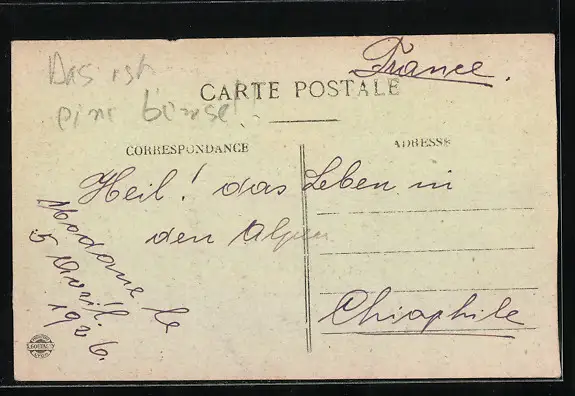 France.
Das ist
eine
CARTE POSTALE
CORRESPONDANCE
ADRESSE
Heil! das Leben in
den Alpen
Modane le
5 Avril
1926.
Chiaphile